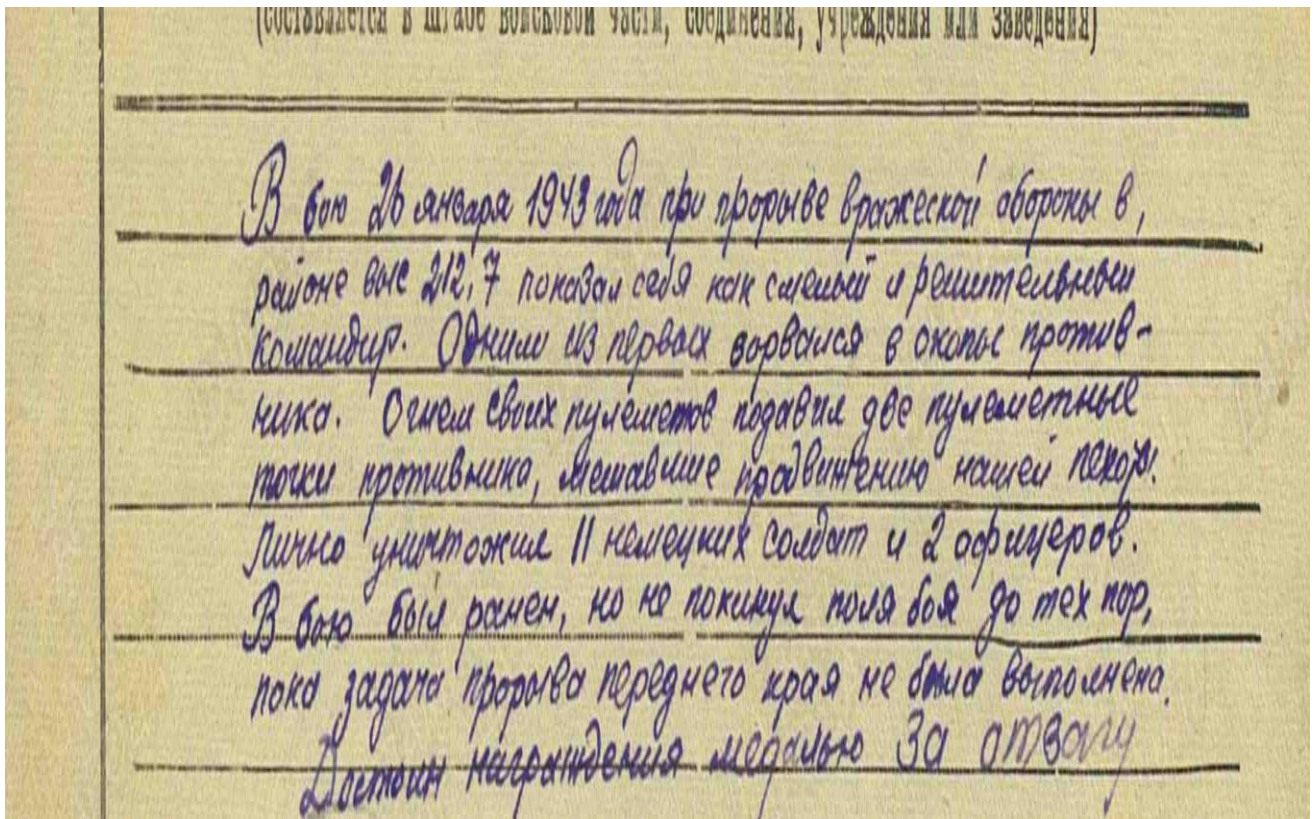 (составляется в штабе войсковой части, соединения, учреждения или заведения)
В бою 26 января 1943 года при прорыве вражеской обороны в,
районе выс 212,7 показал себя как смелый и решительный
командир. Одним из первых ворвался в окопы против-
ника. Огнем своих пулеметов подавил две пулеметные
точки противника, мешавшие продвижению нашей пехоты.
Лично уничтожил 11 немецких солдат и 2 офицеров.
В бою был ранен, но не покинул поля боя до тех пор,
пока задача прорыва переднего края не была выполнена.
Достоин награждения медалью За отвагу